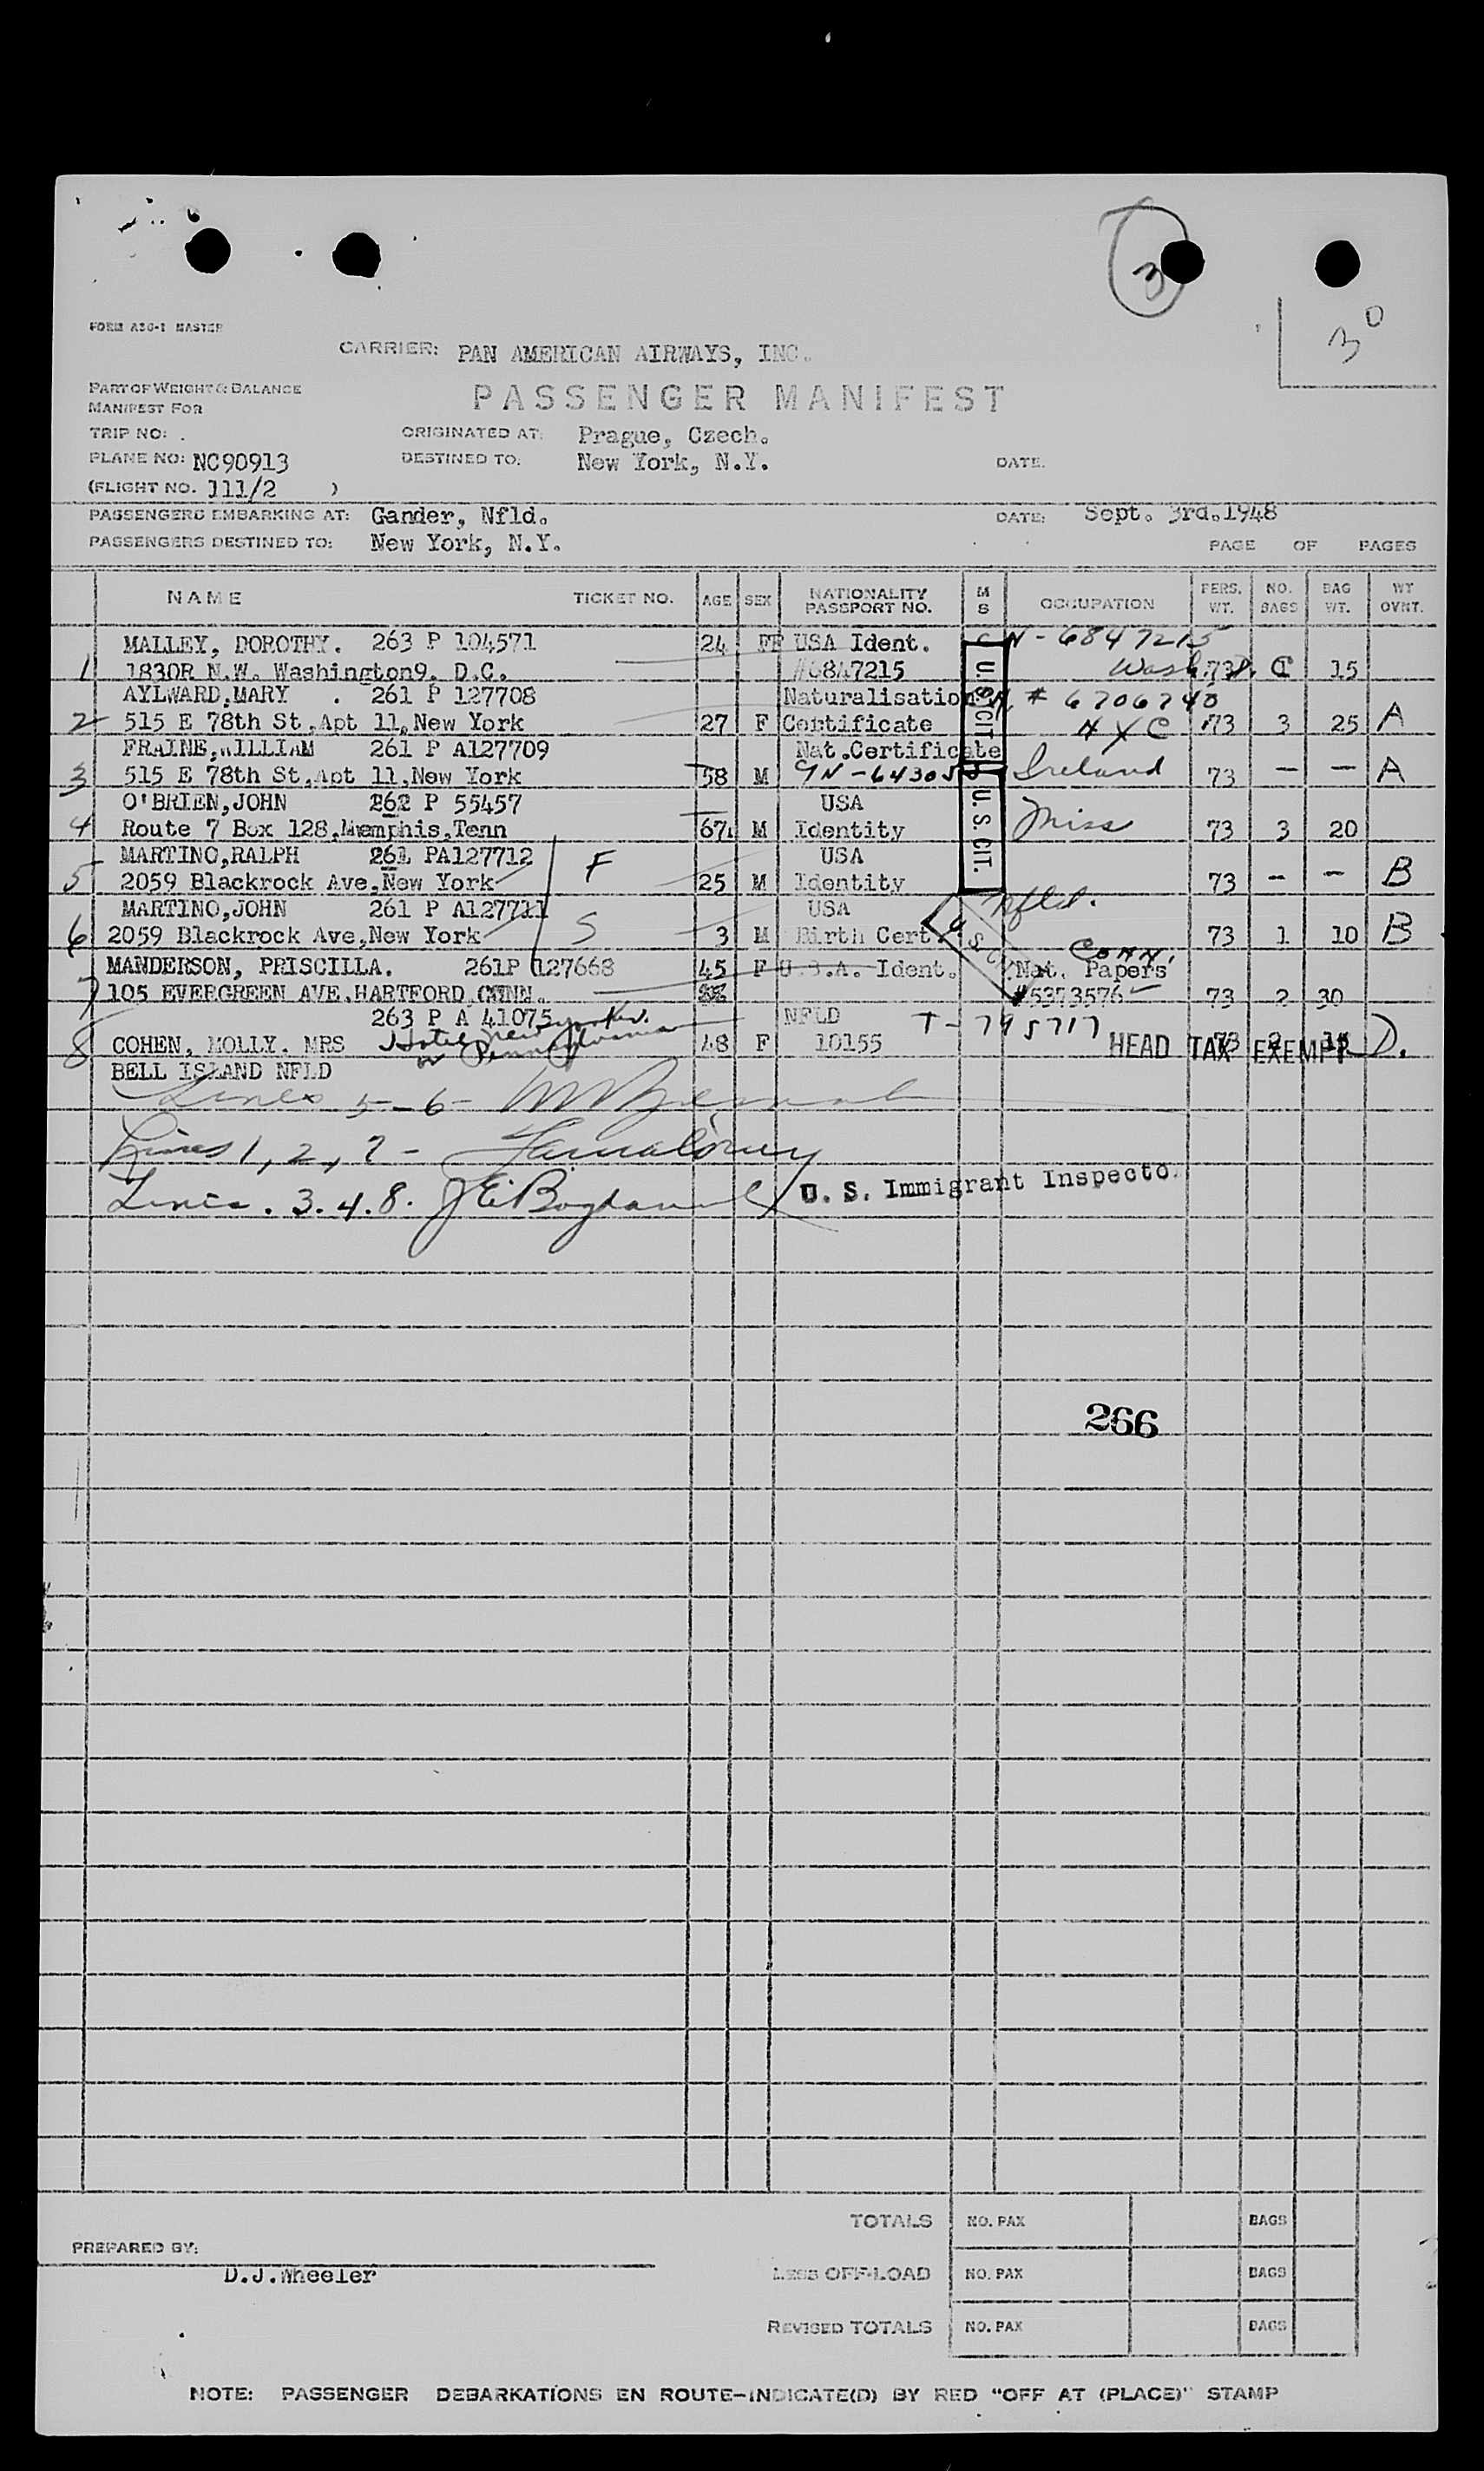 3
3 0
FORM A30-1 MASTER
CARRIER: PAN AMERICAN AIRWAYS, INC.
PART OF WEIGHT & BALANCE
MANIFEST FOR
PASSENGER MANIFEST
TRIP NO: .
ORIGINATED AT: Prague, Czech.
PLANE NO: NC90913
DESTINED TO: New York, N.Y.
DATE.
(FLIGHT NO. 111/2 )
PASSENGERS EMBARKING AT: Gander, Nfld.
DATE: Sept. 3rd.1948
PASSENGERS DESTINED TO: New York, N.Y.
PAGE OF PAGES
NAME TICKET NO. AGE SEX NATIONALITY PASSPORT NO. M S OCCUPATION PERS. WT. NO. BAGS BAG WT. WT OVNT.
MALLEY, DOROTHY. 263 P 104571 24 FF USA Ident. N-6847215
1 1830R N.W. Washington9. D.C. #6847215 Wash. D.C 73 1 15
AYLWARD,MARY . 261 P 127708 Naturalisation # 6706740
2 515 E 78th St,Apt 11,New York 27 F Certificate NYC 73 3 25 A
FRAINE,WILLIAM 261 P A127709 Nat.Certificate
3 515 E 78th St,Apt 11,New York 58 M Ireland 73 — — A
O'BRIEN,JOHN 262 P 55457 USA
4 Route 7 Box 128,Memphis,Tenn 67 M Identity Miss 73 3 20
U.S. CIT.
U.S. CIT.
MARTINO,RALPH 261 PA127712 F USA
5 2059 Blackrock Ave,New York 25 M Identity 73 — — B
MARTINO,JOHN 261 P A127711 USA Nfld.
6 2059 Blackrock Ave,New York S 3 M Birth Cert. 73 1 10 B
U.S. CIT.
Conn.
MANDERSON, PRISCILLA. 261P 127668 45 F U.S.A. Ident. Nat. Papers
7 105 EVERGREEN AVE.HARTFORD CONN. #5373576 73 2 30
263 P A 41075 NFLD T-795717
8 COHEN, MOLLY. MRS Hotel New Yorker or Pennsylvania 48 F 10155 73 2 15 D.
HEAD TAX EXEMPT
BELL ISLAND NFLD
Lines 5-6-
Lines 1, 2, 7 -
Lines. 3.4.8.
U. S. Immigrant Inspector
266
TOTALS NO. PAX BAGS
PREPARED BY:
D.J.Wheeler
LESS OFF-LOAD NO. PAX BAGS
REVISED TOTALS NO. PAX BAGS
NOTE: PASSENGER DEBARKATIONS EN ROUTE—INDICATE(D) BY RED "OFF AT (PLACE)" STAMP